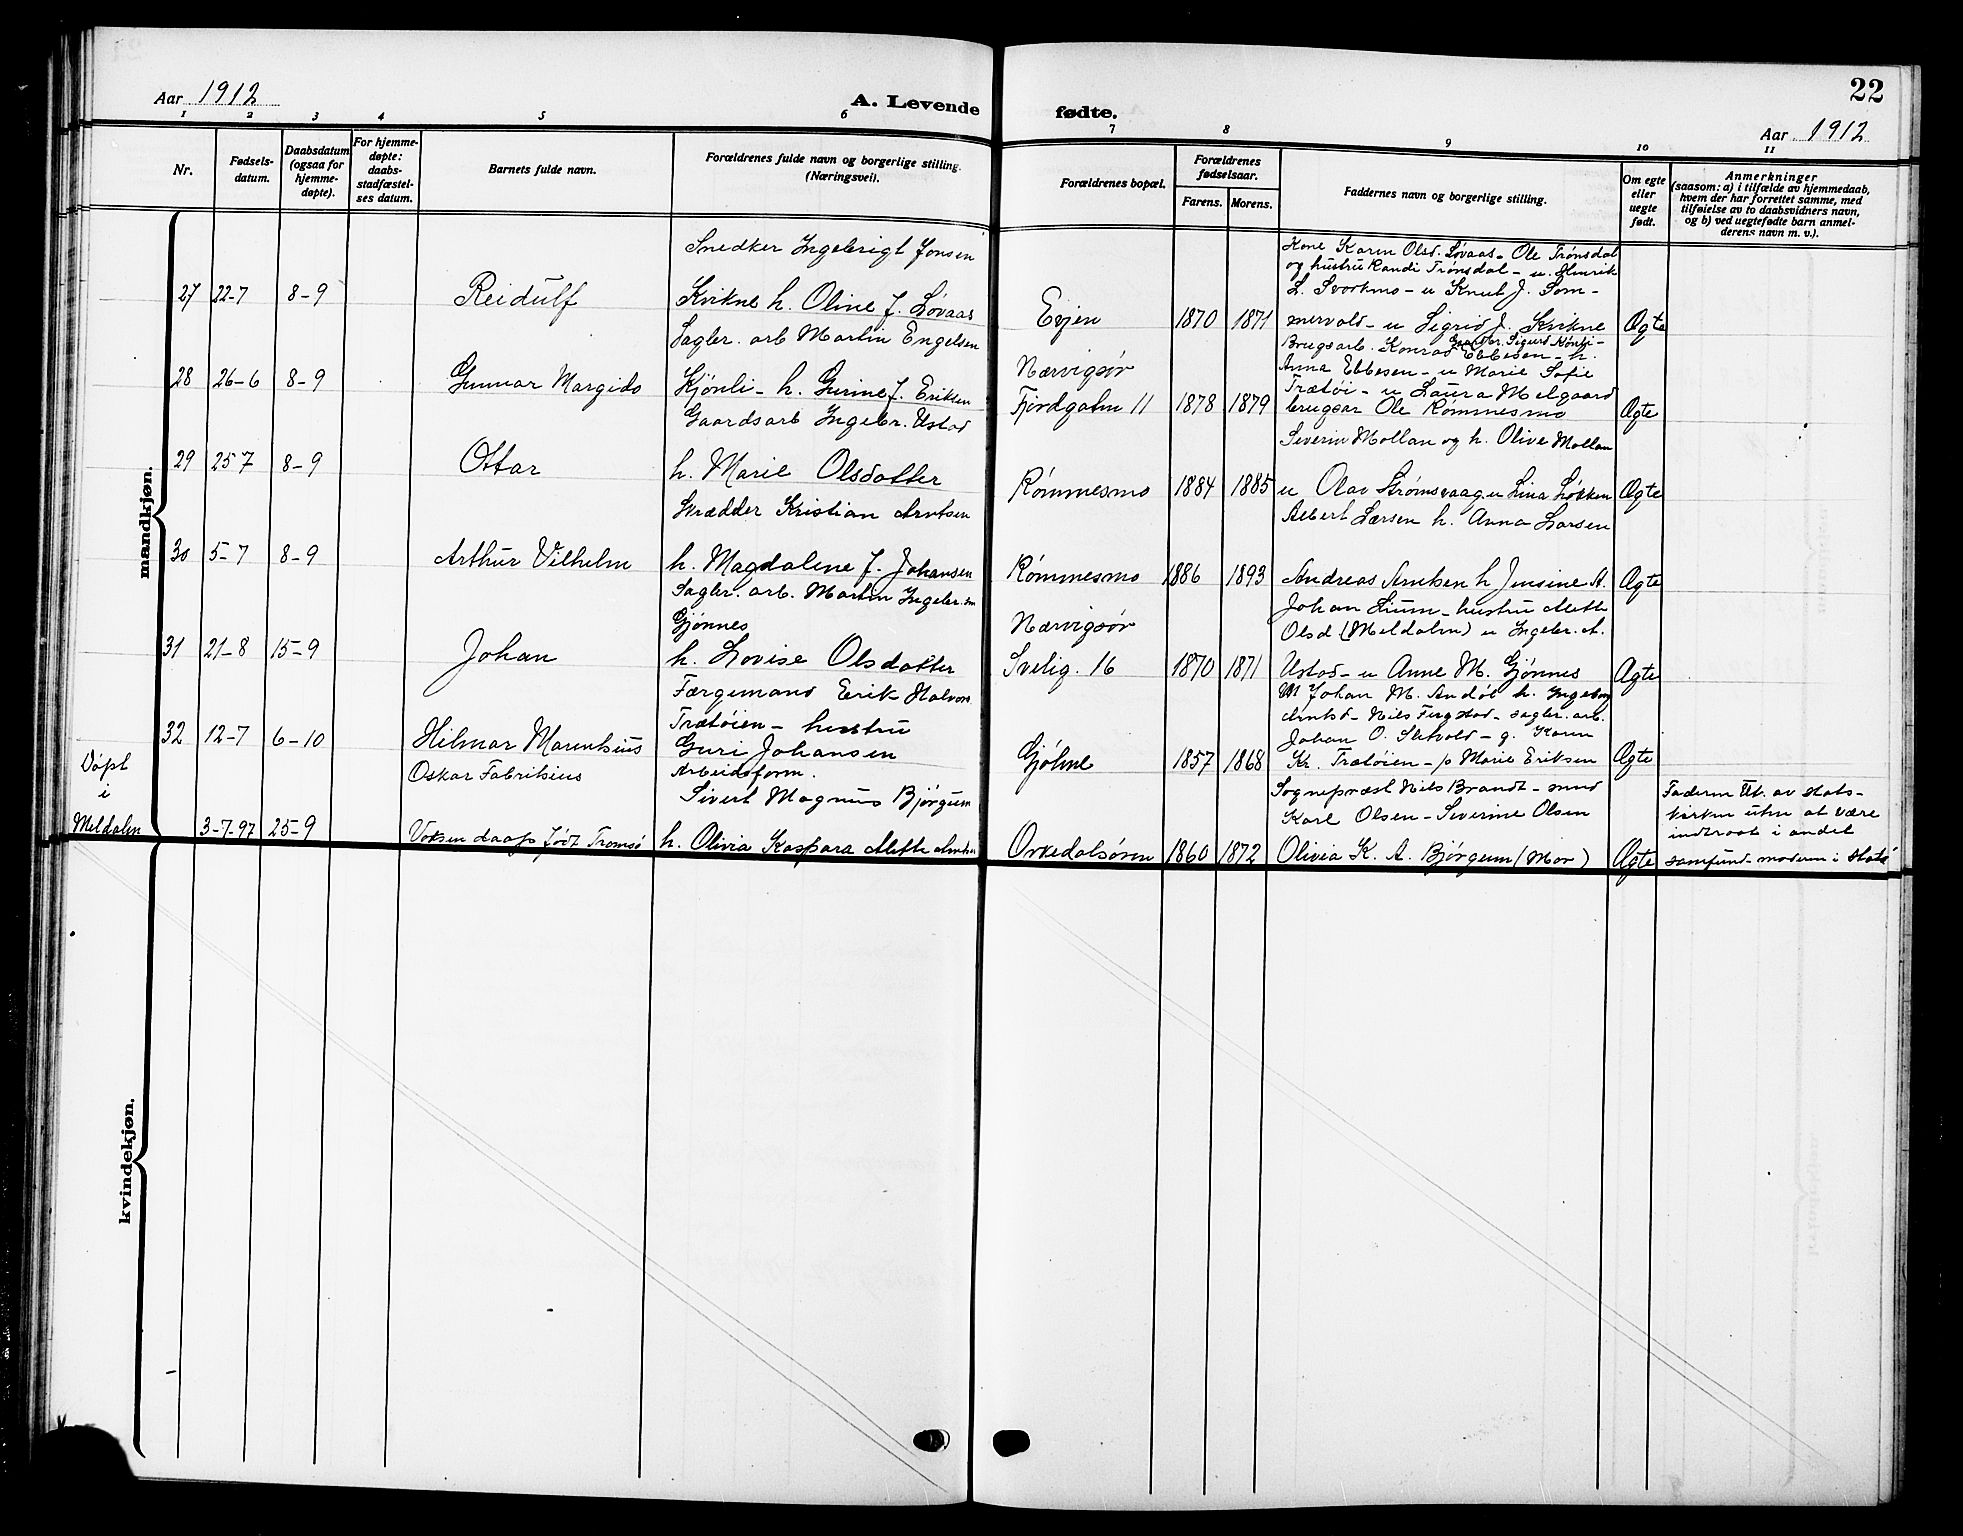 Aar 1912
A. Levende
1 2 3 4 5 6
Nr.
Fødsels-
datum.
Daabsdatum
(ogsaa for
hjemme-
døpte).
For hjemme-
døpte:
daabs-
stadfæstel-
ses datum.
Barnets fulde navn.
Forældrenes fulde navn og borgerlige stilling.
(Næringsvei).
mandkjøn.
Snedker Ingebrigt Jonsen
27 22-7 8-9 Reidulf Kvikne h. Oline f. Løvaas
Sagbr. arb Martin Engelsen
28 26-6 8-9 Gunnar Margido Kjønli - h. Gurine f. Eriksen
Gaardsarb Ingebr. Ustad
29 25 7 8-9 Ottar h. Marie Olsdatter
Skrædder Kristian Arntsen
30 5-7 8-9 Arthur Vilhelm h. Magdalene f. Johansen
Sagbr. arb. Martin Ingebr.sn
Gjønnes
31 21-8 15-9 Johan h. Lovise Olsdatter
Færgemand Eerik Halvors
Trætøien - hustru
32 12-7 6-10 Hilmar Marentsius Guri Johansen
Døpt
i
Meldalen
Oskar Fabritsius Arbeidsform.
Sivert Magnus Bjørgum
3-7-97 25-9 Voksen daap født Tromsø h. Olivia Kaspara Mette Arntsn
kvindekjøn.
fødte.
22
Aar 1912
7 8 9 10 11
Forældrenes bopæl.
Forældrenes
fødselsaar.
Farens. Morens.
Faddernes navn og borgerlige stilling.
Om egte
eller
uegte
født.
Anmerkninger
(saasom: a) i tilfælde av hjemmedaab,
hvem der har forrettet samme, med
tilføielse av to daabsvidners navn,
og b) ved uegtefødte barn anmel-
derens navn m. v.).
Kone Karen Olsd. Løvaas - Ole Trønsdal
og hustru Randi Trønsdal - u. Henrik
L. Svorkmo - u Knut J. Som-
Evjen 1870 1871 mervold - u Sigrid J. Kvikne Ægte
Gaardbr. Sigurd Kønli -
Brugsarb. Konrad Ebbesen - h.
Nærvigsør Anna Ebbesen - u Marie Sofie
Trætøi - u Laura Melgaard
Fjordgaten 11 1878 1879 brugsar Ole Rømmesmo Ægte
Severin Mollan og h. Olive Mollan
Rømmesmo 1884 1885 u Olav Strømsvaag u Lina Løkken Ægte
Albert Larsen h. Anna Larsen
Rømmesmo 1886 1893 Andreas Arntsen h Jensine A. Ægte
Johan Lium - hustru Mette
Nærvigsør Olsd (Meldalen) u Ingebr. A.
Svelig. 16 1870 1871 Ustad - u Anne M. Gjønnes Ægte
Johan M. Andøl h. Ingeborg
Arntsd - Nils Fergstad - sagbr. arb.
Johan O. Sletvold - g. Karen
Gjølme 1857 1868 Kr. Trætøien - p Marie Eriksen Ægte
Sogneprest Nils Brandt - smed
Karl Olsen - Severine Olsen
Orkedalsøren 1860 1872 Olivia K. A. Bjørgum (Mor) Ægte
Faderen Ut. av stats-
kirken uten at være
indtraat i andet
samfund - moderen i stats